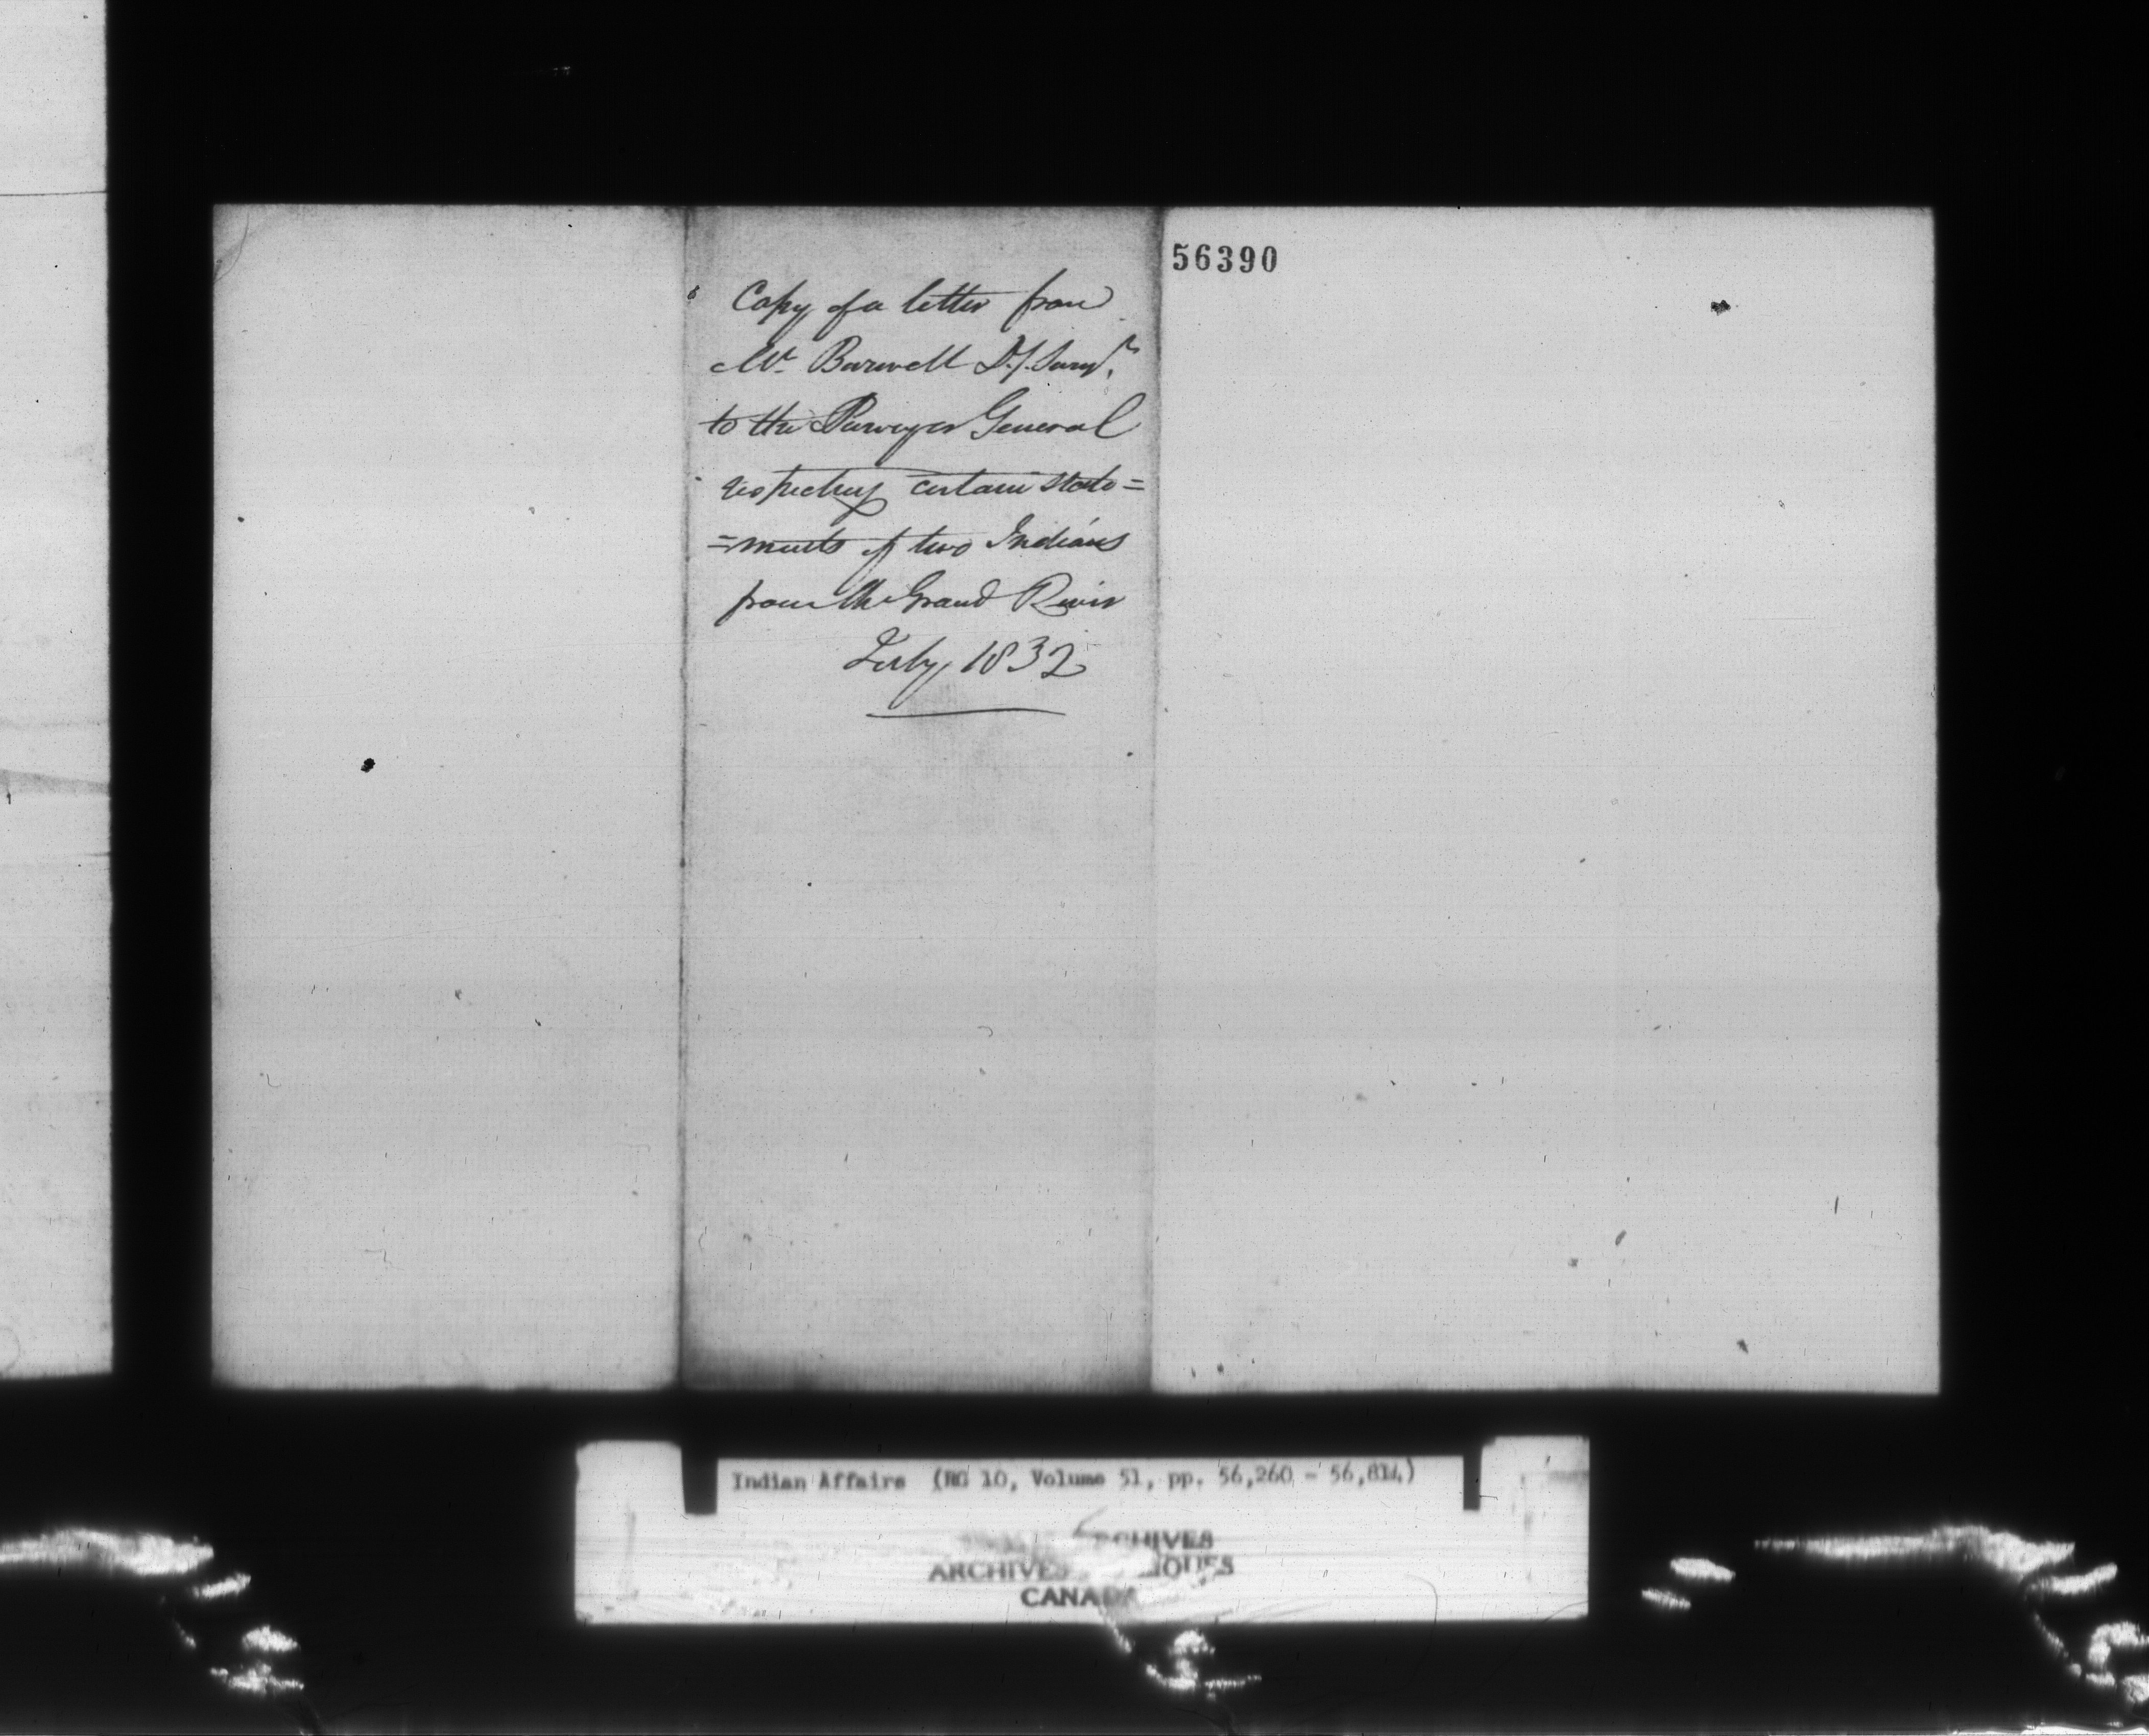 56390
Copy of a letter from
Mr Burwell D.y. Survr.
to the Surveyor General
respecting certain state=
=ments of two Indians
from the Grand River
Feby, 1832
Indian Affairs (RG 10, Volume 51, pp. 56,260 - 56,814)
ARCHIVES
CANADA